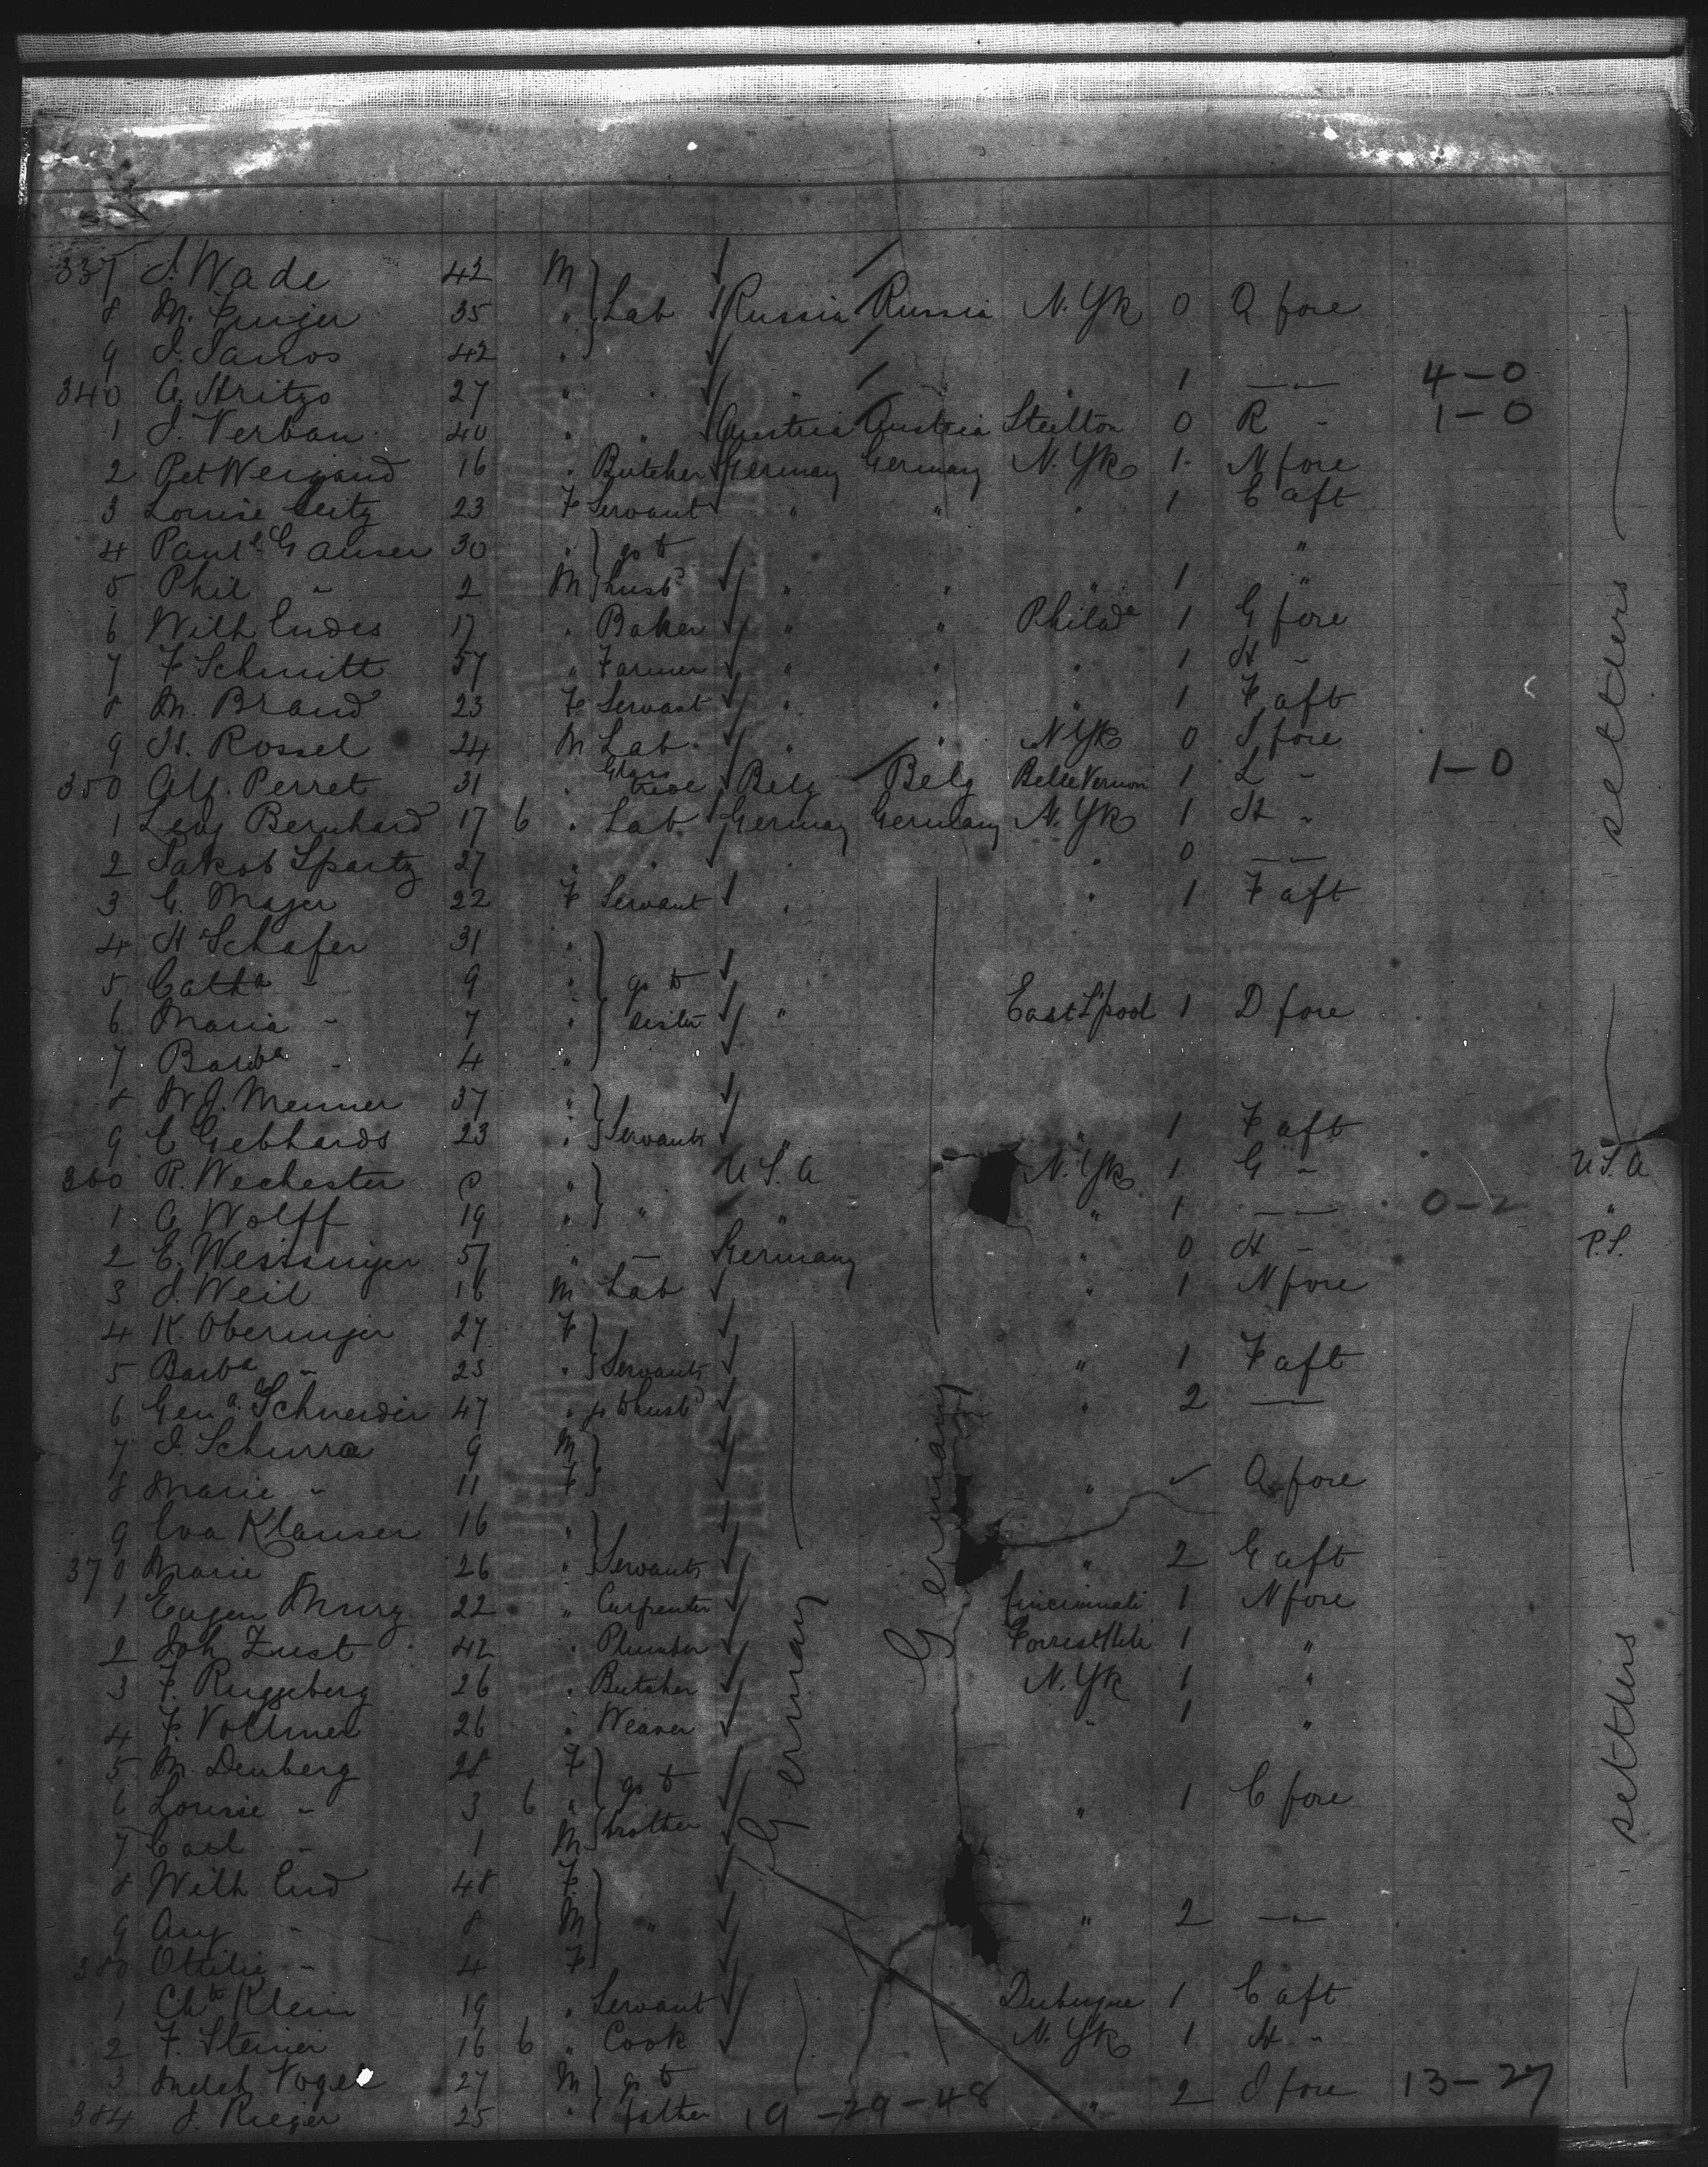 337 J. Wade 42 M
8 M. Finger 35 " Lab Russia Russia N.Yk 0 Q fore
9 J. Janros 42 "
340 A. Stritzs 27 " " 1 — " — 4 – 0
1 J. Verban 40 " " Austria Austria Steelton 0 R " 1 – 0
2 Pet Weigand 16 " Butcher Germany Germany N.Yk 1 N fore
3 Louise Seitz 23 F Servant " " " 1 E aft
4 Paul Ganser 30 " go to "
5 Phil " 2 M husbd " " " 1 "
6 Wilh Endes 17 " Baker " " Philada 1 G fore
7 F Schmitt 57 " Farmer " " " 1 H "
8 M. Brand 23 F Servant " " " 1 F aft
9 H. Rossel 24 M Lab " " N.Yk 0 S fore
350 Alf. Perret 31 " Glass Belg Belg Belle Vernon 1 L " 1 – 0
1 Levy Bernhard 17 6 " Lab Germany Germany N.Yk 1 H "
2 Jakob Spartz 27 " " " " 0 — " —
3 G. Mager 22 F Servant " " 1 F aft
4 H Schafer 31 "
5 Catha " 9 " go to
6 Maria " 7 " sister " East L'pool 1 D fore
7 Barba " 4 "
8 W J. Menner 37 "
9 C Gebhards 23 " Servants " " 1 F aft
360 R. Wechester " U S. A N.Yk 1 G " U.S.A
1 A Wolff 19 " " " " 1 — " — 0 – 2 "
2 E. Weissinger 57 " — Germany " 0 H " P.S.
3 J. Weil 16 M Lab " 1 N fore
4 K. Oberinger 27 F
5 Barba " 23 " Servants " 1 F aft
6 Gena Schneider 47 " go to husbd " 2 — " —
7 J. Schurra 9 M
8 Marie " 11 F " Q fore
9 Eva Klauser 16 "
370 Marie 26 " Servants " 2 G aft
1 Eugen Murg 22 " Carpenter Cincinnati 1 N fore
2 Joh Zust 42 " Plumber 1 "
3 F. Ruggeberg 26 " Butcher N.Yk 1 "
4 F. Vollmer 26 " Weaver " 1 "
5 M. Denberg 28 F go to
6 Louise " 3 6 " brother " 1 C fore
7 Carl " 1 M
8 Wilh End 48 F
9 Aug " 8 M " " 2 — " —
380 Ottilie " 4 F
1 Chte Klein 19 " Servant Dubuque 1 C aft
2 F. Steiner 16 6 " Cook N.Yk 1 H "
3 Vogel 27 M go to 2 J fore 13 – 27
384 J. Rieger 25 " father 19 – 29 – 48 "
Germany
Germany
settlers
settlers